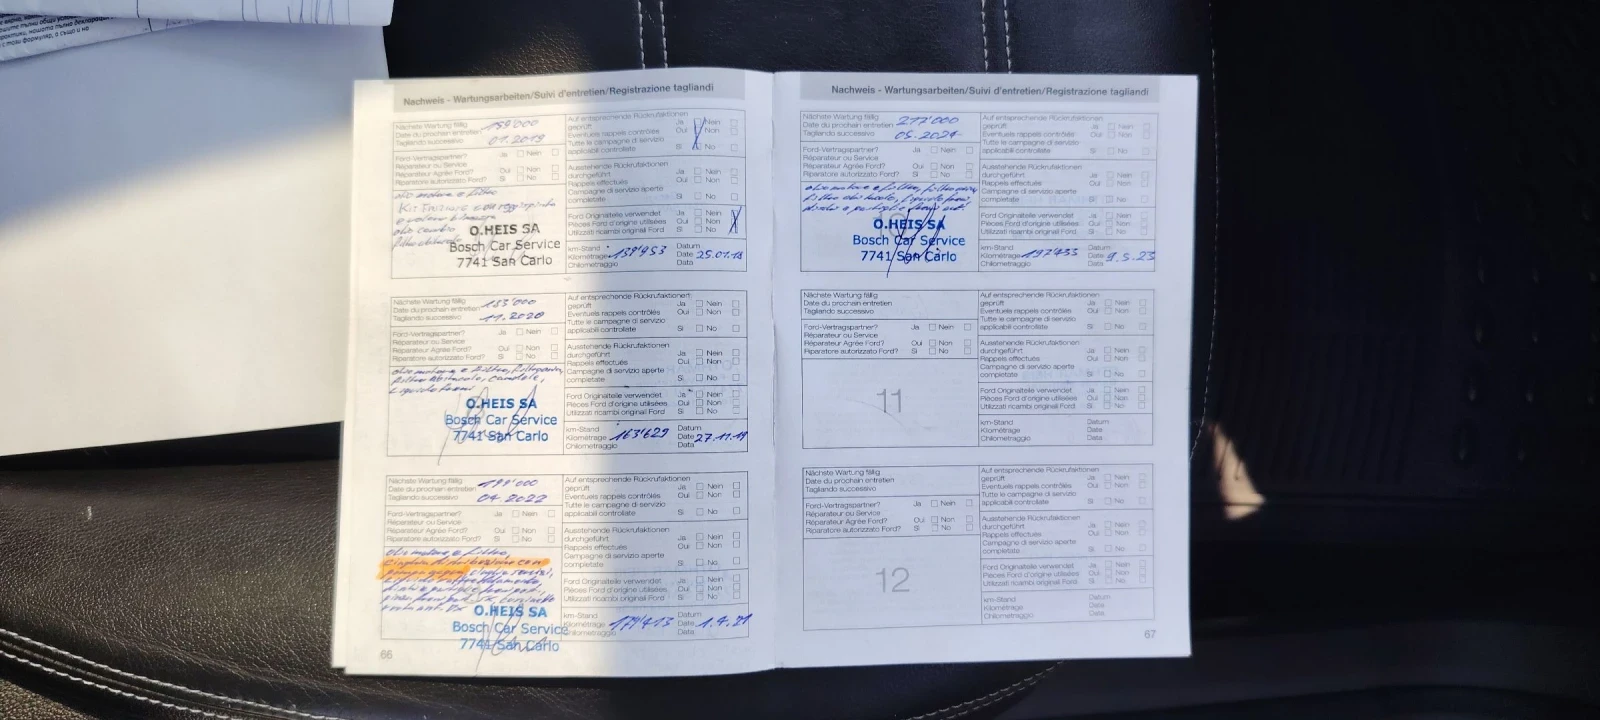 Nachweis - Wartungsarbeiten/Suivi d'entretien/Registrazione tagliandi
Nächste Wartung fällig
Date du prochain entretien 159'000
Tagliando successivo 01.2019
Ford-Vertragspartner? Ja Nein
Réparateur ou Service
Réparateur Agrée Ford? Oui Non
Riparatore autorizzato Ford? Si No
olio motore e filtro
Kit
olio cambio
O.HEIS SA
Bosch Car Service
7741 San Carlo
Auf entsprechende Rückrufaktionen
geprüft Ja Nein
Eventuels rappels contrôlés Oui Non
Tutte le campagne di servizio
applicabili controllate Si No
Ausstehende Rückrufaktionen
durchgeführt Ja Nein
Rappels effectués Oui Non
Campagne di servizio aperte
completate Si No
Ford Originalteile verwendet Ja Nein
Pièces Ford d'origine utilisées Oui Non
Utilizzati ricambi original Ford Si No
km-Stand Datum
Kilométrage 139'953 Date 25.01.18
Chilometraggio Data
Nächste Wartung fällig 183'000
Date du prochain entretien
Tagliando successivo 11.2020
Ford-Vertragspartner? Ja Nein
Réparateur ou Service
Réparateur Agrée Ford? Oui Non
Riparatore autorizzato Ford? Si No
olio motore e filtro,
filtro abitacolo, candele,
liquido freni
O.HEIS SA
Bosch Car Service
7741 San Carlo
Auf entsprechende Rückrufaktionen
geprüft Ja Nein
Eventuels rappels contrôlés Oui Non
Tutte le campagne di servizio
applicabili controllate Si No
Ausstehende Rückrufaktionen
durchgeführt Ja Nein
Rappels effectués Oui Non
Campagne di servizio aperte
completate Si No
Ford Originalteile verwendet Ja Nein
Pièces Ford d'origine utilisées Oui Non
Utilizzati ricambi original Ford Si No
km-Stand Datum
Kilométrage 163'629 Date 27.11.19
Chilometraggio Data
Nächste Wartung fällig 199'000
Date du prochain entretien
Tagliando successivo 04.2022
Ford-Vertragspartner? Ja Nein
Réparateur ou Service
Réparateur Agrée Ford? Oui Non
Riparatore autorizzato Ford? Si No
olio motore e filtro,
cinghia di distribuzione con
pompa acqua
O.HEIS SA
Bosch Car Service
7741 San Carlo
Auf entsprechende Rückrufaktionen
geprüft Ja Nein
Eventuels rappels contrôlés Oui Non
Tutte le campagne di servizio
applicabili controllate Si No
Ausstehende Rückrufaktionen
durchgeführt Ja Nein
Rappels effectués Oui Non
Campagne di servizio aperte
completate Si No
Ford Originalteile verwendet Ja Nein
Pièces Ford d'origine utilisées Oui Non
Utilizzati ricambi original Ford Si No
km-Stand Datum
Kilométrage 179'413 Date 1.4.21
Chilometraggio Data
66
Nachweis - Wartungsarbeiten/Suivi d'entretien/Registrazione tagliandi
Nächste Wartung fällig 217'000
Date du prochain entretien
Tagliando successivo 05.2024
Ford-Vertragspartner? Ja Nein
Réparateur ou Service
Réparateur Agrée Ford? Oui Non
Riparatore autorizzato Ford? Si No
olio motore e filtro, filtro aria,
filtro abitacolo, liquido freni,
dischi e pastiglie freni ant.
10
O.HEIS SA
Bosch Car Service
7741 San Carlo
Auf entsprechende Rückrufaktionen
geprüft Ja Nein
Eventuels rappels contrôlés Oui Non
Tutte le campagne di servizio
applicabili controllate Si No
Ausstehende Rückrufaktionen
durchgeführt Ja Nein
Rappels effectués Oui Non
Campagne di servizio aperte
completate Si No
Ford Originalteile verwendet Ja Nein
Pièces Ford d'origine utilisées Oui Non
Utilizzati ricambi original Ford Si No
km-Stand Datum
Kilométrage 197'433 Date 9.5.23
Chilometraggio Data
Nächste Wartung fällig
Date du prochain entretien
Tagliando successivo
Ford-Vertragspartner? Ja Nein
Réparateur ou Service
Réparateur Agrée Ford? Oui Non
Riparatore autorizzato Ford? Si No
11
Auf entsprechende Rückrufaktionen
geprüft Ja Nein
Eventuels rappels contrôlés Oui Non
Tutte le campagne di servizio
applicabili controllate Si No
Ausstehende Rückrufaktionen
durchgeführt Ja Nein
Rappels effectués Oui Non
Campagne di servizio aperte
completate Si No
Ford Originalteile verwendet Ja Nein
Pièces Ford d'origine utilisées Oui Non
Utilizzati ricambi original Ford Si No
km-Stand Datum
Kilométrage Date
Chilometraggio Data
Nächste Wartung fällig
Date du prochain entretien
Tagliando successivo
Ford-Vertragspartner? Ja Nein
Réparateur ou Service
Réparateur Agrée Ford? Oui Non
Riparatore autorizzato Ford? Si No
12
Auf entsprechende Rückrufaktionen
geprüft Ja Nein
Eventuels rappels contrôlés Oui Non
Tutte le campagne di servizio
applicabili controllate Si No
Ausstehende Rückrufaktionen
durchgeführt Ja Nein
Rappels effectués Oui Non
Campagne di servizio aperte
completate Si No
Ford Originalteile verwendet Ja Nein
Pièces Ford d'origine utilisées Oui Non
Utilizzati ricambi original Ford Si No
km-Stand Datum
Kilométrage Date
Chilometraggio Data
67